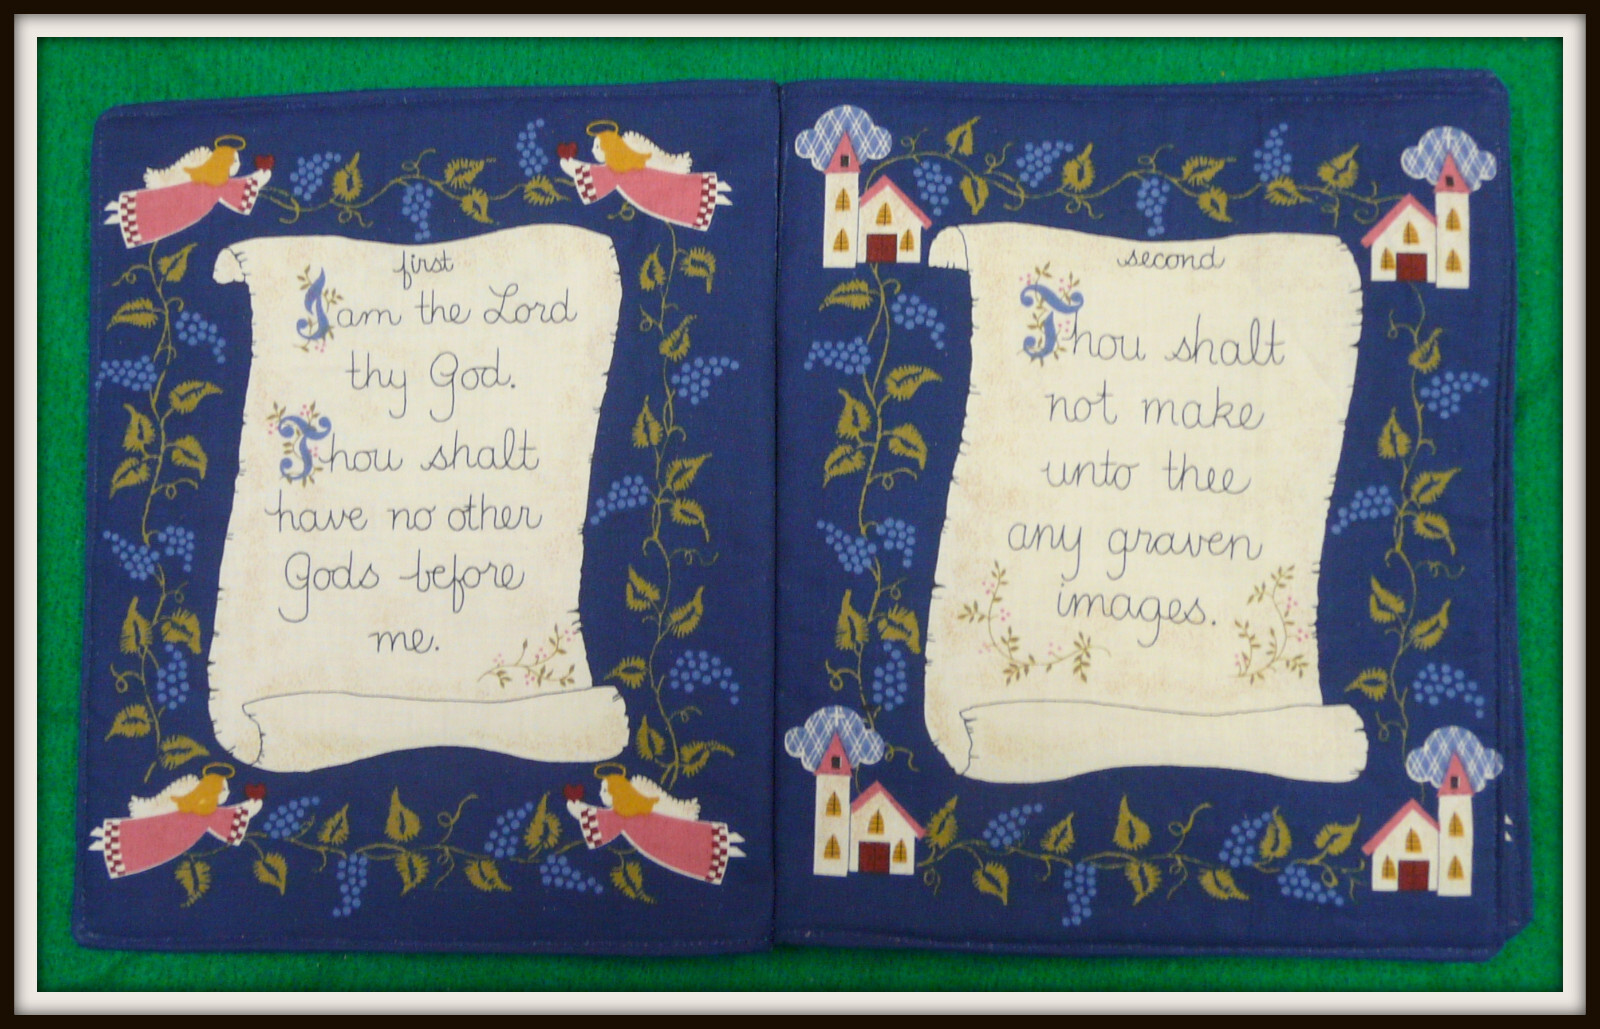 first
I am the Lord
thy God.
Thou shalt
have no other
Gods before
me.
second
Thou shalt
not make
unto thee
any graven
images.